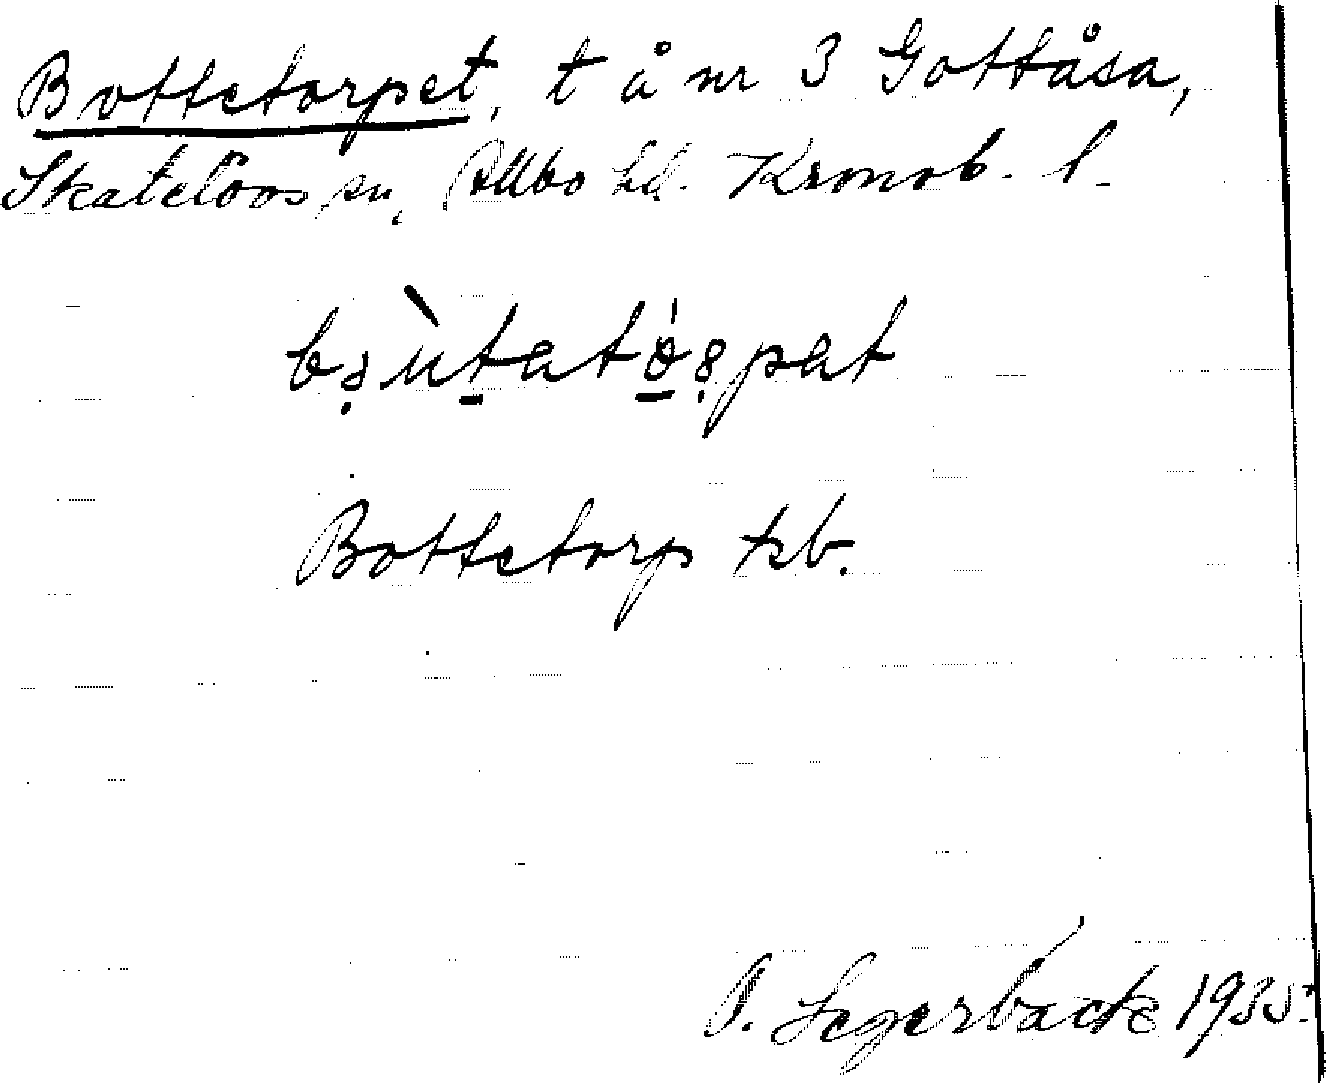 Bottetorpet, t å nr 3 Gottåsa,
Skatelövs sn, Allbo hd. Kronob. l.
Bottetorp tsb.
Segerbäck 1935.